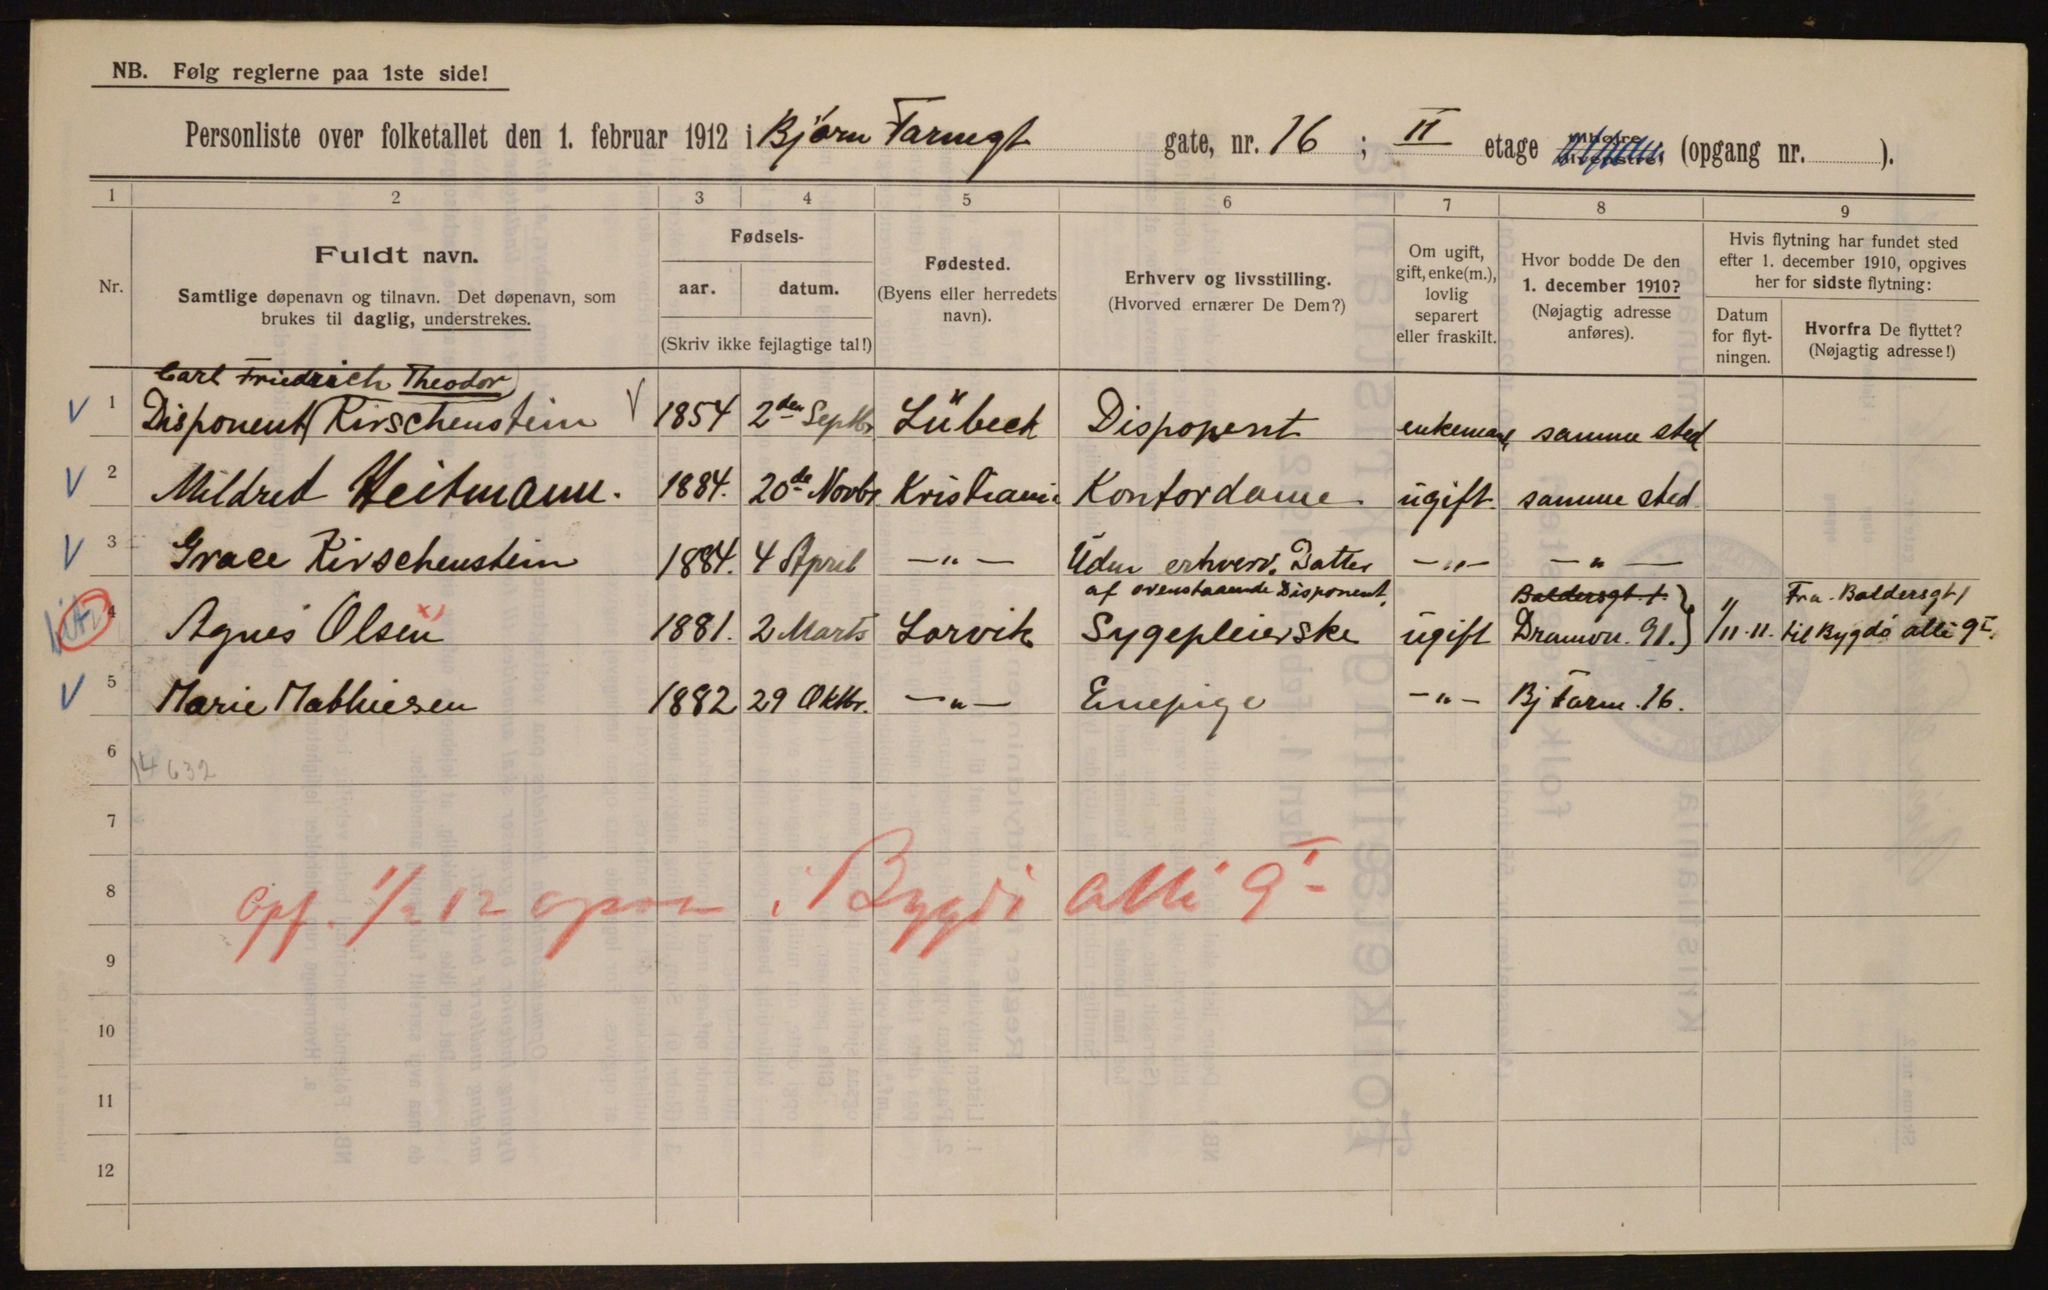 NB. Følg reglerne paa 1ste side!
Personliste over folketallet den 1. februar 1912 i Bjørn Farmgt gate, nr. 16 ; II etage (opgang nr. ).
1 2 3 4 5 6 7 8 9
Nr.
Fuldt navn.
Samtlige døpenavn og tilnavn. Det døpenavn, som
brukes til daglig, understrekes.
Fødsels-
aar. datum.
(Skriv ikke fejlagtige tal!)
Fødested.
(Byens eller herredets
navn).
Erhverv og livsstilling.
(Hvorved ernærer De Dem?)
Om ugift,
gift, enke(m.),
lovlig
separert
eller fraskilt.
Hvor bodde De den
1. december 1910?
(Nøjagtig adresse
anføres).
Hvis flytning har fundet sted
efter 1. december 1910, opgives
her for sidste flytning:
Datum
for flyt-
ningen.
Hvorfra De flyttet?
(Nøjagtig adresse!)
Carl Friedrich Theodor
1 Disponent Kirschenstein 1854 2den Septbr Lübeck Disponent enkemand samme sted
2 Mildred Heitmann. 1884. 20de Novbr Kristiania Kontordame ugift. samme sted
3 Grace Kirschenstein 1884. 4 April —"— Uden erhverv. Datter —"— —"—
af ovenstaaende Disponent.
Baldersgt. 1. Fra Baldersgt 1
4 Agnes Olsen x) 1881. 2 Marts Larvik Sygepleierske ugift Dramvn. 91. 1/11-11. til Bygdø allé 9 I.
5 Marie Mathiesen 1882 29 Oktbr. —"— Enepige —"— Bj Farm. 16.
6
14632
7
8 Opf. 1/2 12 ogsaa i Bygdø allé 9 I
9
10
11
12